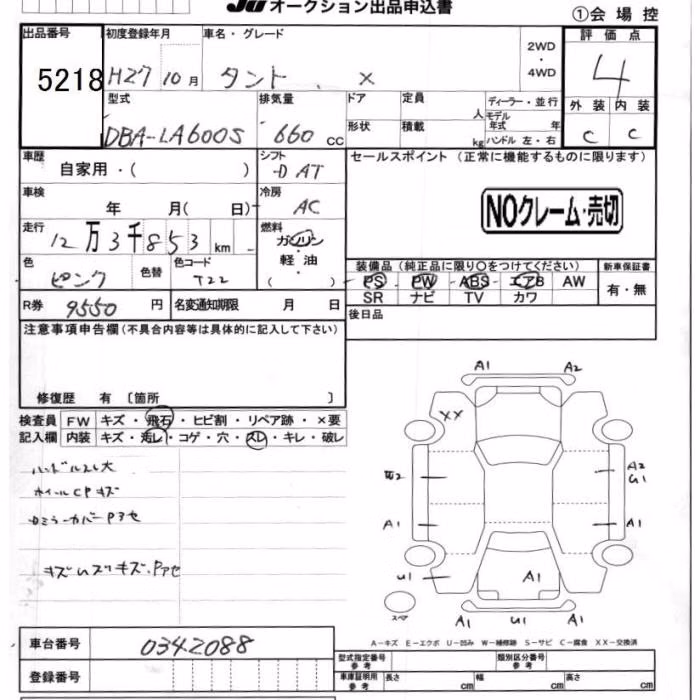 JU オークション出品申込書
①会場控
出品番号 初度登録年月 車名・グレード 2WD ・ 4WD 評価点
5218 H27 10月 タント X 4
型式 排気量 ドア 定員 人 ディーラー・並行 外装 内装
DBA-LA600S 660cc 形状 積載 kg モデル年式 年 ハンドル 左・右 C C
車歴 自家用・( ) シフト D AT セールスポイント (正常に機能するものに限ります)
車検 年 月( 日) 冷房 AC NOクレーム・売切
走行 12万3千853km 燃料 ガソリン・軽油( )
装備品(純正品に限り○をつけてください) 新車保証書
色 ピンク 色替 色コード T22 PS PW ABS エアB AW 有・無
SR ナビ TV カワ
R券 9550円 名変通知期限 月 日 後日品
注意事項申告欄(不具合内容等は具体的に記入して下さい)
修復歴 有 〔箇所 〕
検査員 FW キズ・飛石・ヒビ割・リペア跡・×要
記入欄 内装 キズ・汚レ・コゲ・穴・スレ・キレ・破レ
ハンドルスレ大
ホイールCPキズ
A1 A2
XX
W2 A2 U1
A1 A1
U1 A1
スペア U1 A1
A-キズ E-エクボ U-凹み W-補修跡 S-サビ C-腐食 XX-交換済
車台番号 0342088
登録番号
型式指定番号 参考 類別区分番号 参考
車庫証明用 参考 長さ cm 幅 cm 高さ cm